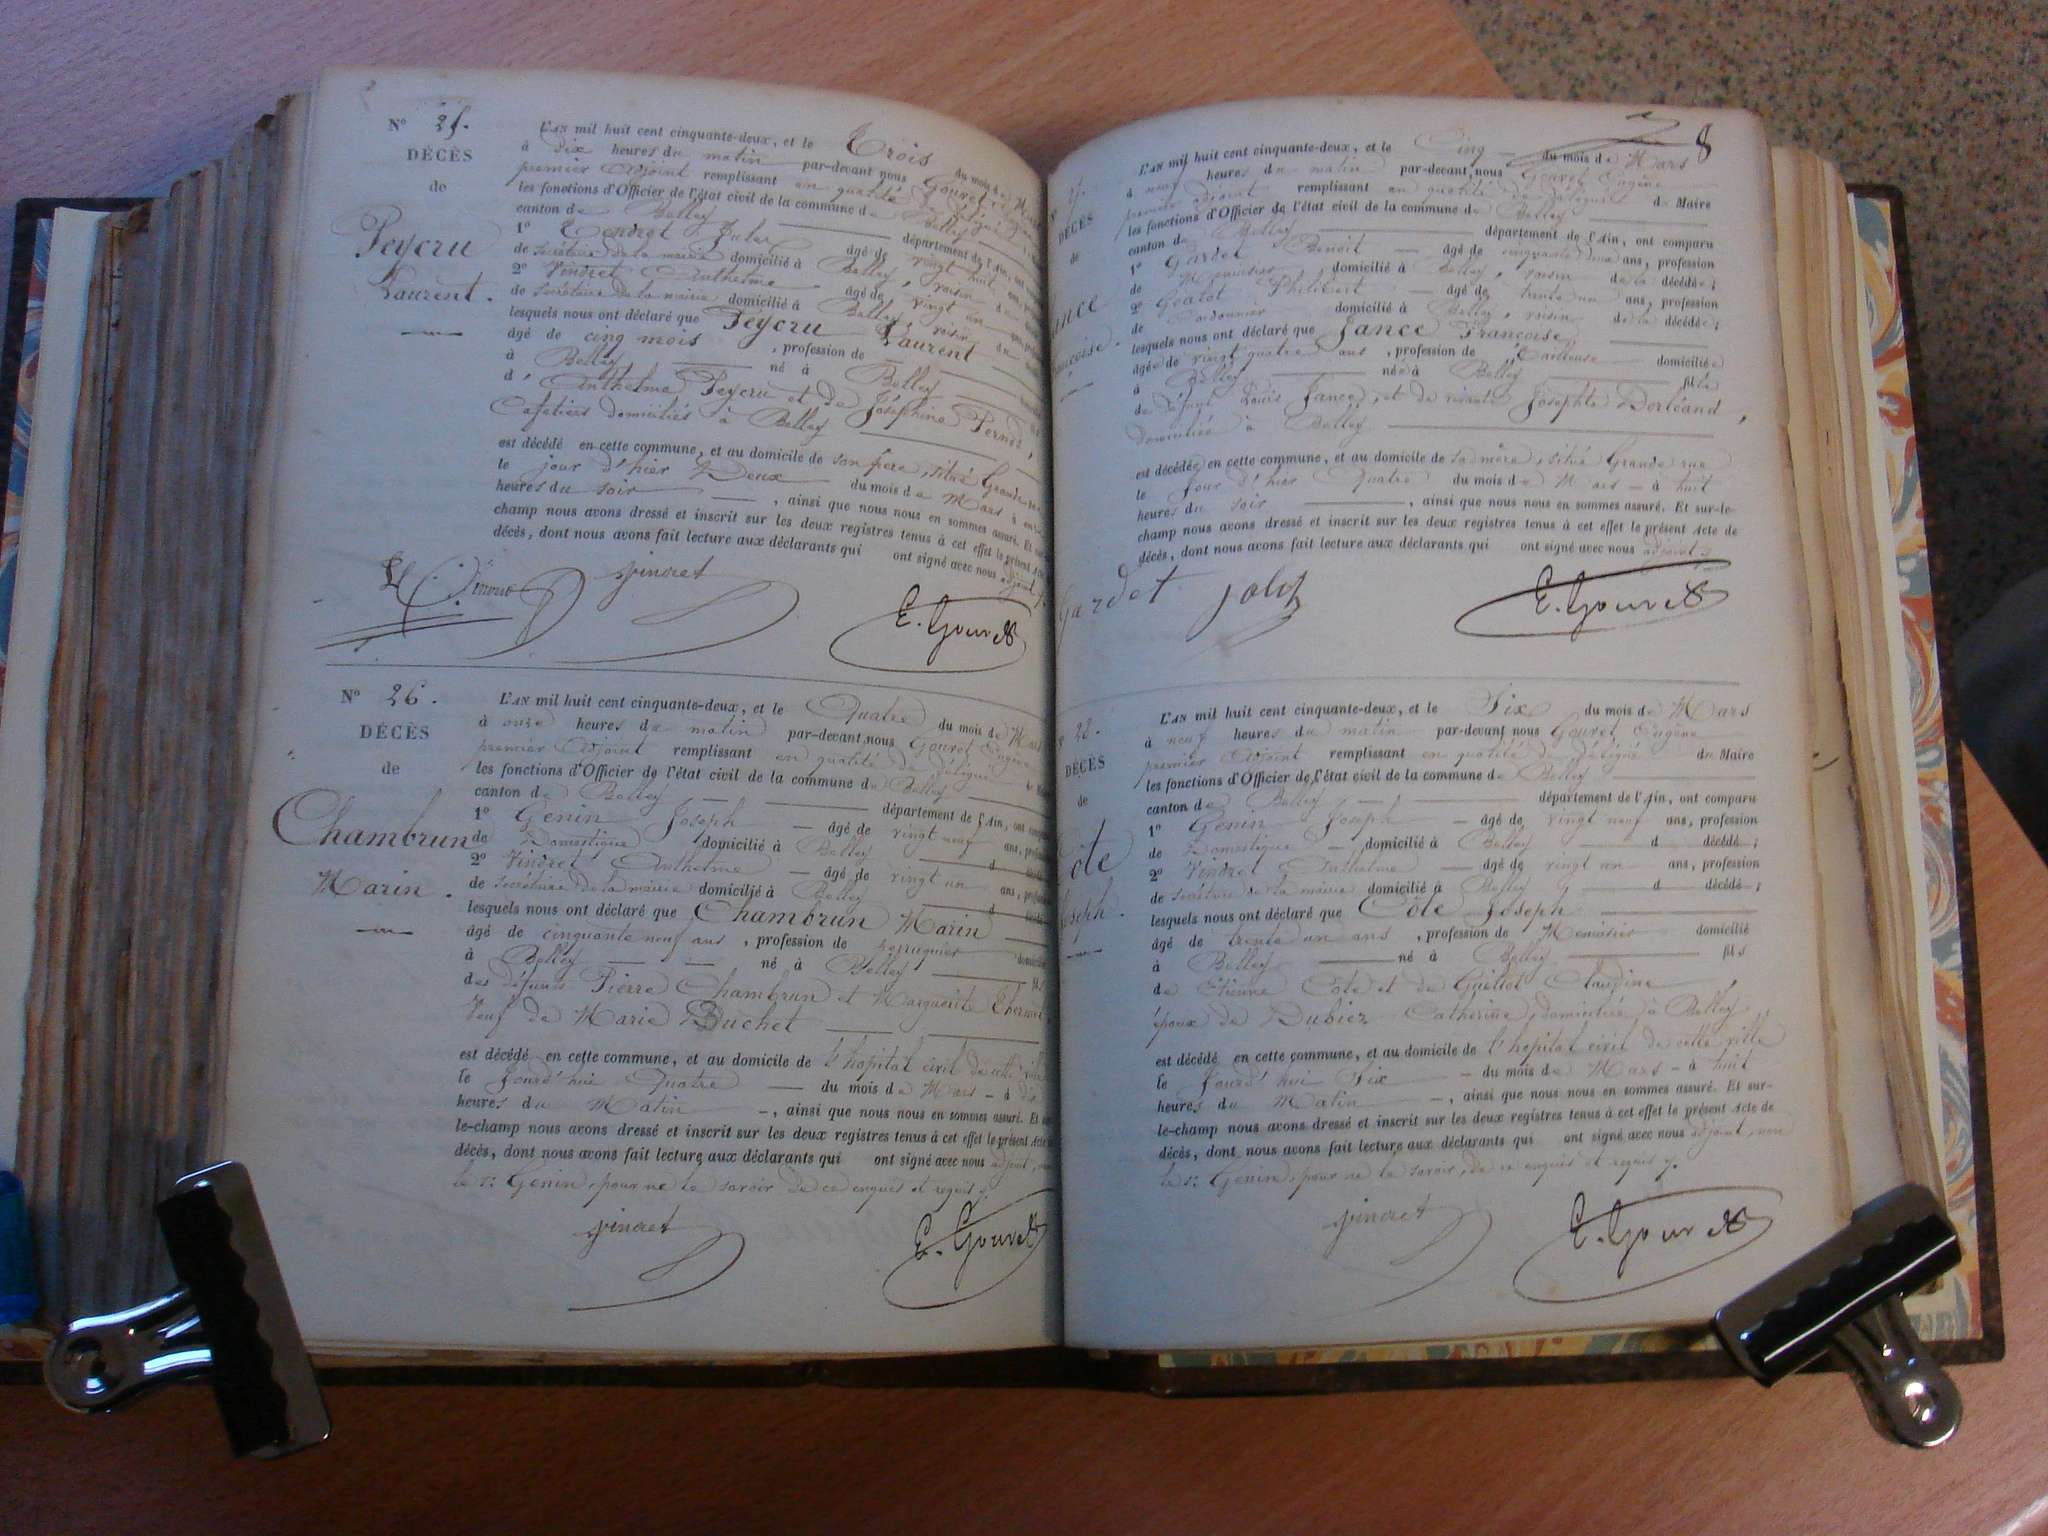 N° 25.
DÉCÈS
de
Peycru
Laurent.
L'AN mil huit cent cinquante-deux, et le Trois du mois de
à dix heures du matin par-devant nous Gouret
premier adjoint remplissant en qualité de délégué
les fonctions d'Officier de l'état civil de la commune de Belley
canton de Belley département de l'Ain, ont
1° Jules âgé de vingt huit ans
de secrétaire de la mairie domicilié à Belley, voisin
2° Vindret Anthelme âgé de vingt un
de secrétaire de la mairie domicilié à Belley, voisin du
lesquels nous ont déclaré que Peycru Laurent
âgé de cinq mois, profession de
à Belley né à Belley
d'Anthelme Peycru et de Joséphine
Cafetiers domiciliés à Belley
est décédé en cette commune, et au domicile de son père, situé Grande rue
le jour d'hier Deux du mois de Mars à
heures du soir, ainsi que nous nous en sommes assuré. Et sur-
champ nous avons dressé et inscrit sur les deux registres tenus à cet effet le présent Acte
décès, dont nous avons fait lecture aux déclarants qui ont signé avec nous adjoint
vindret
E. Gouret
N° 26.
DÉCÈS
de
Chambrun
Marin.
L'AN mil huit cent cinquante-deux, et le Quatre du mois de Mars
à onze heures du matin par-devant nous Gouret Eugène
premier adjoint remplissant en qualité de délégué du
les fonctions d'Officier de l'état civil de la commune de Belley
canton de Belley département de l'Ain, ont
1° Genin Joseph âgé de vingt neuf ans,
de Domestique domicilié à Belley d
2° Vindret Anthelme âgé de vingt un ans,
de secrétaire de la mairie domicilié à Belley d
lesquels nous ont déclaré que Chambrun Marin
âgé de cinquante neuf ans, profession de perruquier
à Belley né à Belley
des défunts Pierre Chambrun et Marguerite
Veuf de Marie Buchet
est décédé en cette commune, et au domicile de l'hopital civil de cette ville
le Jourd'hui Quatre du mois de Mars à
heures du Matin, ainsi que nous nous en sommes assuré. Et
le-champ nous avons dressé et inscrit sur les deux registres tenus à cet effet le présent Acte
décès, dont nous avons fait lecture aux déclarants qui ont signé avec nous adjoint, non
le Sr Genin, pour ne le savoir de ce enquis et requis
vindret
E. Gouret
8
DÉCÈS
de
L'AN mil huit cent cinquante-deux, et le Cinq du mois de Mars
à neuf heures du matin par-devant nous Gouret Eugène
premier adjoint remplissant en qualité de délégué du Maire
les fonctions d'Officier de l'état civil de la commune de Belley
canton de Belley département de l'Ain, ont comparu
1° Gardet Benoit âgé de cinquante deux ans, profession
de Menuisier, domicilié à Belley, voisin de la décédée;
2° Philibert âgé de trente un ans, profession
de Cordonnier domicilié à Belley, voisin de la décédée;
lesquels nous ont déclaré que Jance Françoise
âgée de vingt quatre ans, profession de Tailleuse domiciliée
à Belley née à Belley fille
de défunt Louis Jance, et de vivante Josephte Dorléand,
domiciliée à Belley
est décédée en cette commune, et au domicile de sa mère, situé Grande rue
le Jour d'hier Quatre du mois de Mars à huit
heures du soir, ainsi que nous nous en sommes assuré. Et sur-le-
champ nous avons dressé et inscrit sur les deux registres tenus à cet effet le présent Acte de
décès, dont nous avons fait lecture aux déclarants qui ont signé avec nous adjoint
Gardet
E. Gouret
28.
DÉCÈS
de
L'AN mil huit cent cinquante-deux, et le Six du mois de Mars
à neuf heures du matin par-devant nous Gouret Eugène
premier adjoint remplissant en qualité de délégué du Maire
les fonctions d'Officier de l'état civil de la commune de Belley
canton de Belley département de l'Ain, ont comparu
1° Genin Joseph âgé de vingt neuf ans, profession
de Domestique domicilié à Belley d décédé;
2° Vindret Anthelme âgé de vingt un ans, profession
de secrétaire de la mairie domicilié à Belley d décédé;
lesquels nous ont déclaré que Côte Joseph
âgé de trente un ans, profession de Menuisier domicilié
à Belley né à Belley fils
de Etienne Côte et de Guillot Claudine,
époux de Dubiez Catherine, domiciliée à Belley
est décédé en cette commune, et au domicile de l'hopital civil de cette ville
le Jourd'hui Six du mois de Mars à huit
heures du Matin, ainsi que nous nous en sommes assuré. Et sur-
le-champ nous avons dressé et inscrit sur les deux registres tenus à cet effet le présent Acte de
décès, dont nous avons fait lecture aux déclarants qui ont signé avec nous adjoint, non
le Sr Genin, pour ne le savoir, de ce enquis et requis
vindret
E. Gouret